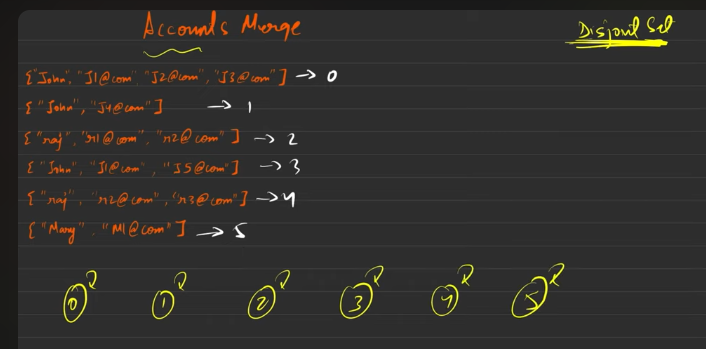 Accounts Merge
Disjoint Set
{"John", "J1@com" "J2@com", "J3@com"] → 0
{"John", "J4@com"] → 1
{"raj", "r1@com", "r2@com"] → 2
{"John", "J1@com", "J5@com"] → 3
{"raj", "r2@com", "r3@com"] → 4
{"Mary", "M1@com"] → 5
0 1 2 3 4 5